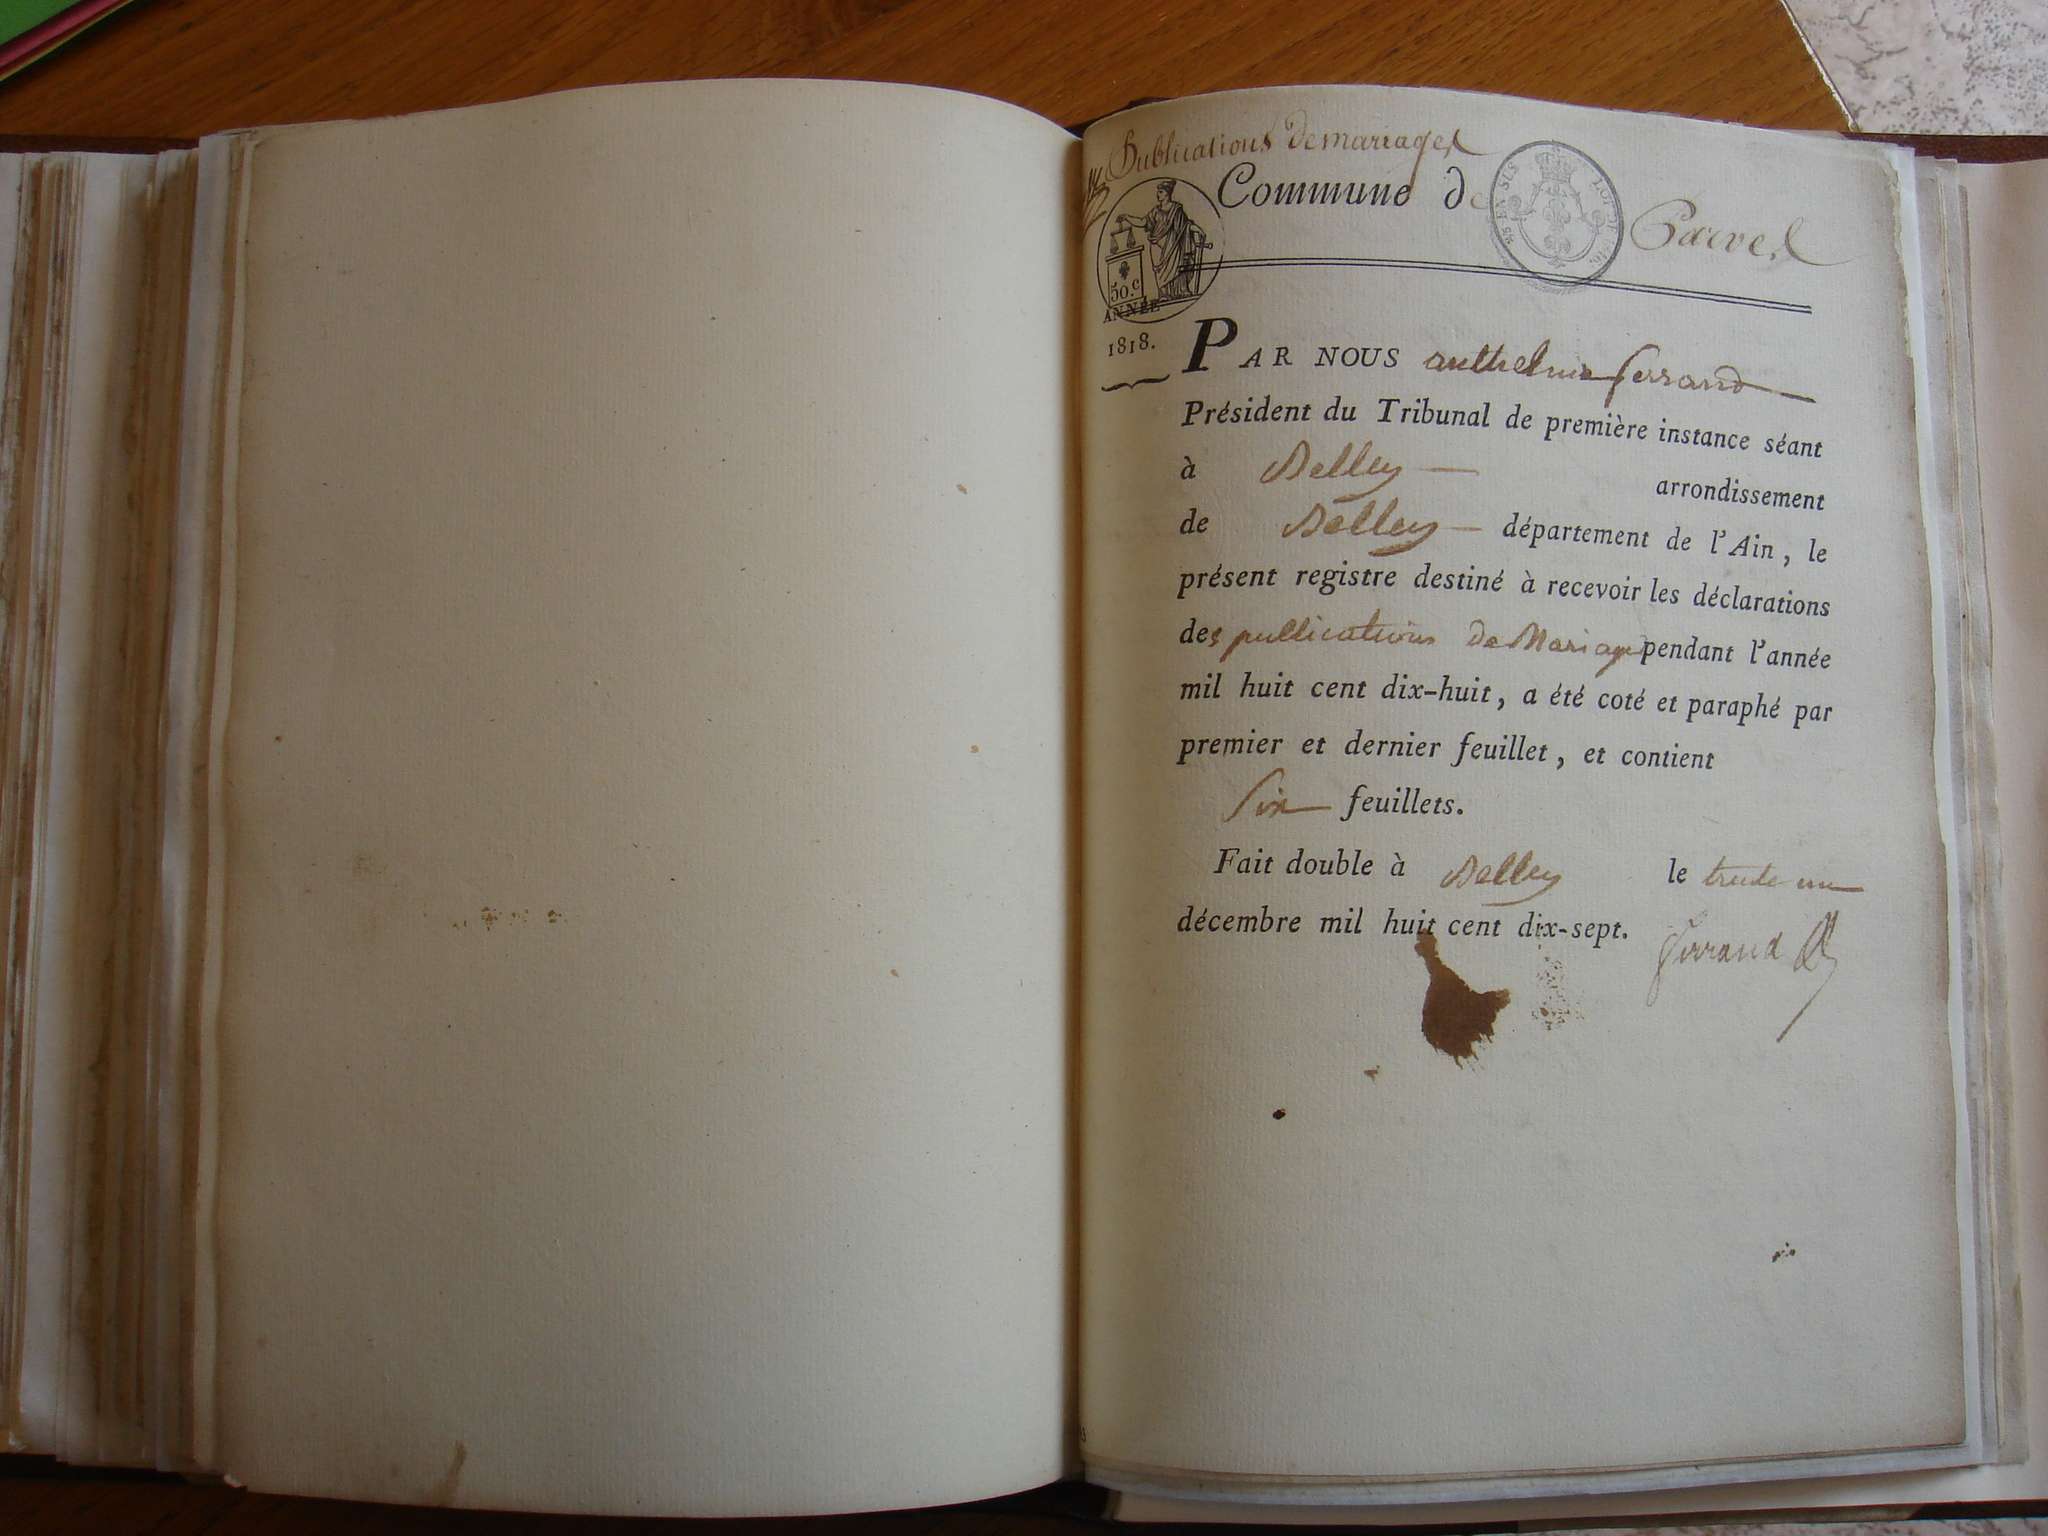 Publications de mariages
Commune de Parves
50.c
ANNÉE
1818.
PAR NOUS anthelme ferrand
Président du Tribunal de première instance séant
à Belley arrondissement
de Belley département de l'Ain, le
présent registre destiné à recevoir les déclarations
des publications de Mariage pendant l'année
mil huit cent dix-huit, a été coté et paraphé par
premier et dernier feuillet, et contient
Six feuillets.
Fait double à Belley le trente un
décembre mil huit cent dix-sept.
ferrand